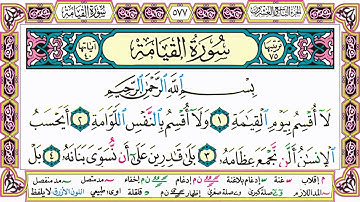 سُورَةُ الْقِيَامَةِ ٥٧٧ الجزء التاسع والعشرون
ترتيبها ٧٥ سُورَةُ الْقِيَامَةِ آياتها ٤٠
بِسْمِ اللَّهِ الرَّحْمَنِ الرَّحِيمِ
لَا أُقْسِمُ بِيَوْمِ الْقِيَامَةِ ١ وَلَا أُقْسِمُ بِالنَّفْسِ اللَّوَّامَةِ ٢ أَيَحْسَبُ
الْإِنسَانُ أَلَّن نَّجْمَعَ عِظَامَهُ ٣ بَلَى قَادِرِينَ عَلَى أَن نُّسَوِّيَ بَنَانَهُ ٤ بَلْ